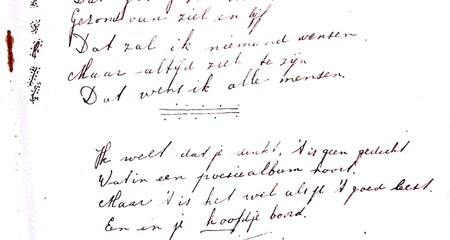 Gezond van ziel en lijf
Dat zal ik niemand wensen.
Maar altijd ziek te zijn
Dat wens ik alle mensen.
Ik weet dat je denkt, 't is geen gedicht
Wat in een poesiealbum hoort.
Maar 't is het wel als je 't goed leest.
En in je hoofdje boord.